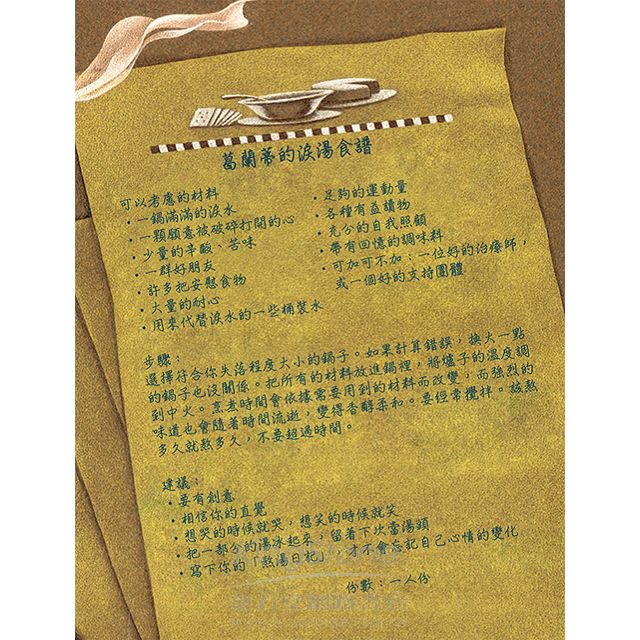 葛蘭蒂的淚湯食譜
可以考慮的材料
・一鍋滿滿的淚水
・一顆願意被破碎打開的心
・少量的辛酸、苦味
・一群好朋友
・許多把安慰食物
・大量的耐心
・用來代替淚水的一些桶裝水
・足夠的運動量
・各種有益讀物
・充分的自我照顧
・帶有回憶的調味料
・可加可不加：一位好的治療師，
或一個好的支持團體
步驟：
選擇符合你失落程度大小的鍋子。如果計算錯誤，換大一點
的鍋子也沒關係。把所有的材料放進鍋裡，將爐子的溫度調
到中火。烹煮時間會依據需要用到的材料而改變，而強烈的
味道也會隨著時間流逝，變得香醇柔和。要經常攪拌。該熬
多久就熬多久，不要超過時間。
建議：
・要有創意
・相信你的直覺
・想哭的時候就哭，想笑的時候就笑
・把一部分的湯冰起來，留着下次當湯頭
・寫下你的「熬湯日記」，才不會忘記自己心情的變化
份數：一人份